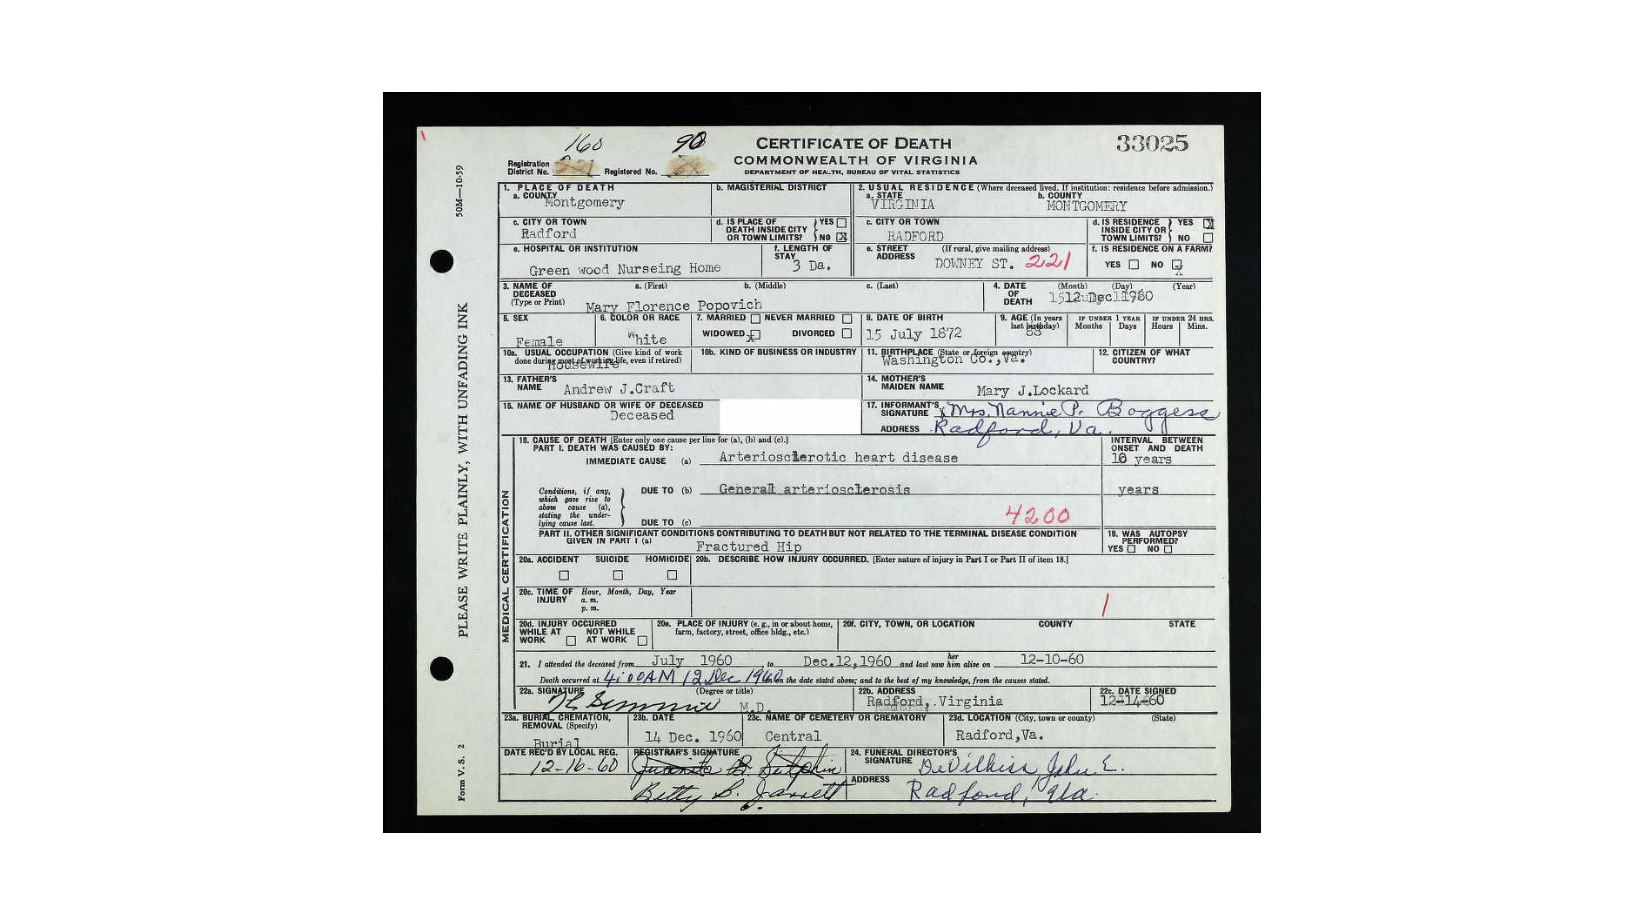 160 90
CERTIFICATE OF DEATH
33025
COMMONWEALTH OF VIRGINIA
DEPARTMENT OF HEALTH, BUREAU OF VITAL STATISTICS
Registration District No. Registered No.
50M—10-59
PLEASE WRITE PLAINLY, WITH UNFADING INK
Form V. S. 2
1. PLACE OF DEATH
a. COUNTY
Montgomery
b. MAGISTERIAL DISTRICT
2. USUAL RESIDENCE (Where deceased lived. If institution: residence before admission.)
a. STATE
VIRGINIA
b. COUNTY
MONTGOMERY
c. CITY OR TOWN
Radford
d. IS PLACE OF DEATH INSIDE CITY OR TOWN LIMITS? YES NO X
c. CITY OR TOWN
RADFORD
d. IS RESIDENCE INSIDE CITY OR TOWN LIMITS? YES X NO
e. HOSPITAL OR INSTITUTION
Green wood Nurseing Home
f. LENGTH OF STAY
3 Da.
e. STREET ADDRESS (If rural, give mailing address)
DOWNEY ST. 221
f. IS RESIDENCE ON A FARM?
YES NO X
3. NAME OF DECEASED (Type or Print)
a. (First) b. (Middle) c. (Last)
Mary Florence Popovich
4. DATE OF DEATH (Month) (Day) (Year)
5. SEX
Female
6. COLOR OR RACE
White
7. MARRIED NEVER MARRIED
WIDOWED X DIVORCED
8. DATE OF BIRTH
15 July 1872
9. AGE (In years last birthday)
88
IF UNDER 1 YEAR
Months Days
IF UNDER 24 HRS.
Hours Mins.
10a. USUAL OCCUPATION (Give kind of work done during most of working life, even if retired)
Housewife
10b. KIND OF BUSINESS OR INDUSTRY
11. BIRTHPLACE (State or foreign country)
Washington Co.,Va.
12. CITIZEN OF WHAT COUNTRY?
13. FATHER'S NAME
Andrew J.Craft
14. MOTHER'S MAIDEN NAME
Mary J.Lockard
15. NAME OF HUSBAND OR WIFE OF DECEASED
Deceased
17. INFORMANT'S SIGNATURE
x Mrs. Nannie P. Boggess
ADDRESS
Radford, Va.
MEDICAL CERTIFICATION
18. CAUSE OF DEATH [Enter only one cause per line for (a), (b) and (c).]
PART I. DEATH WAS CAUSED BY:
INTERVAL BETWEEN ONSET AND DEATH
IMMEDIATE CAUSE (a) Arteriosclerotic heart disease
10 years
Conditions, if any, which gave rise to above cause (a), stating the underlying cause last.
DUE TO (b) General arteriosclerosis
years
DUE TO (c)
4200
PART II. OTHER SIGNIFICANT CONDITIONS CONTRIBUTING TO DEATH BUT NOT RELATED TO THE TERMINAL DISEASE CONDITION GIVEN IN PART I (a)
Fractured Hip
19. WAS AUTOPSY PERFORMED?
YES NO
20a. ACCIDENT SUICIDE HOMICIDE
20b. DESCRIBE HOW INJURY OCCURRED. [Enter nature of injury in Part I or Part II of item 18.]
20c. TIME OF INJURY Hour, Month, Day, Year
a. m.
p. m.
20d. INJURY OCCURRED
WHILE AT WORK NOT WHILE AT WORK
20e. PLACE OF INJURY (e. g., in or about home, farm, factory, street, office bldg., etc.)
20f. CITY, TOWN, OR LOCATION COUNTY STATE
21. I attended the deceased from July 1960, to Dec.12,1960 and last saw her him alive on 12-10-60
Death occurred at 4:00AM 12 Dec 1960 on the date stated above; and to the best of my knowledge, from the causes stated.
22a. SIGNATURE (Degree or title)
M.D.
22b. ADDRESS
Radford, Virginia
22c. DATE SIGNED
12-14-60
23a. BURIAL, CREMATION, REMOVAL (Specify)
Burial
23b. DATE
14 Dec. 1960
23c. NAME OF CEMETERY OR CREMATORY
Central
23d. LOCATION (City, town or county) (State)
Radford,Va.
DATE REC'D BY LOCAL REG.
12-16-60
REGISTRAR'S SIGNATURE
Juanita B. Sutphin
Betty B. Jarrett
24. FUNERAL DIRECTOR'S SIGNATURE
DeVilbiss John E.
ADDRESS
Radford, Va.